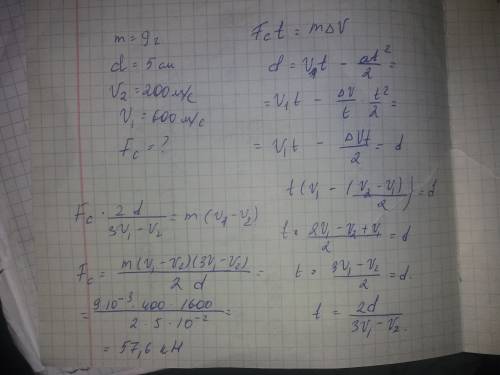 m = 9г
d = 5 см
V₂ = 200 м/с
V₁ = 600 м/с
F_c = ?
F_c t = m ΔV
d = V₁t − at²/2 =
= V₁t − ΔV/t · t²/2 =
= V₁t − ΔVt/2 = d
t (V₁ − (V₂ − V₁)/2) = d
t · (2V₁ − V₂ + V₁)/2 = d
t · (3V₁ − V₂)/2 = d.
t = 2d/(3V₁ − V₂.)
F_c · 2d/(3V₁ − V₂) = m (V₁ − V₂)
F_c = m(V₁ − V₂)(3V₁ − V₂)/2d =
= 9·10⁻³ · 400 · 1600/2 · 5 · 10⁻² =
= 57,6 кН